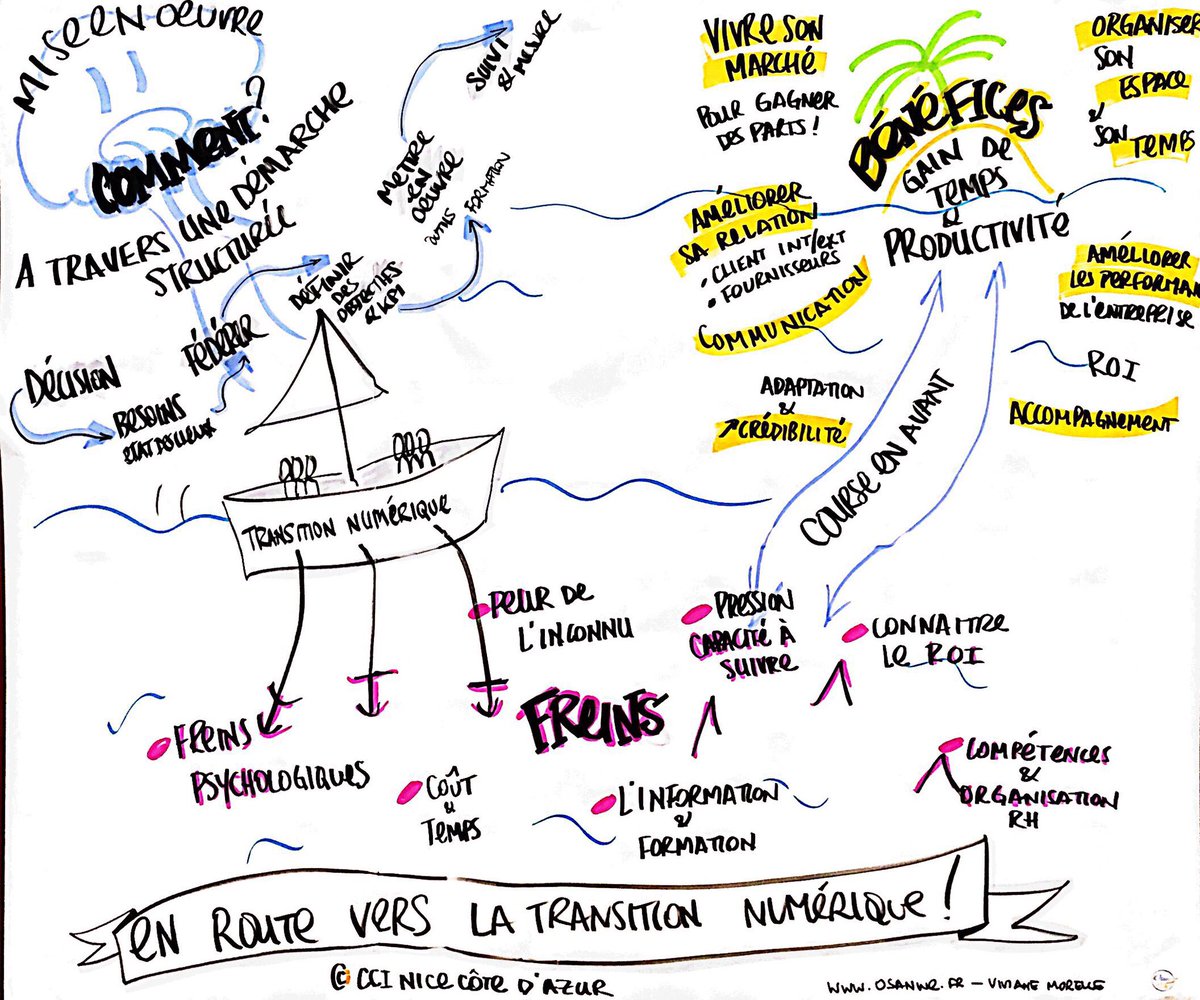 MISE EN OEUVRE
COMMENT?
A TRAVERS UNE DÉMARCHE
STRUCTURÉE
DÉCISION
BESOINS
ETAT DES LIEUX
FÉDÉRER
DÉFINIR
DES
OBJECTIFS
& KPI
METTRE
EN
OEUVRE
FORMATION
SUIVI
& MESURE
VIVRE SON
MARCHÉ
POUR GAGNER
DES PARTS !
ORGANISER
SON
ESPACE
&
SON TEMPS
BÉNÉFICES
GAIN DE
TEMPS
&
PRODUCTIVITÉ
AMÉLIORER
SA RELATION
• CLIENT INT/EXT
• FOURNISSEURS
COMMUNICATION
ADAPTATION
&
↗CRÉDIBILITÉ
AMÉLIORER
LES PERFORMAN
DE L'ENTREPRISE
ROI
ACCOMPAGNEMENT
COURSE EN AVANT
TRANSITION NUMÉRIQUE
PEUR DE
L'INCONNU
PRESSION
CAPACITÉ À
SUIVRE
CONNAITRE
LE ROI
FREINS
FREINS
PSYCHOLOGIQUES
COÛT
&
TEMPS
L'INFORMATION
&
FORMATION
COMPÉTENCES
&
ORGANISATION
RH
EN ROUTE VERS LA TRANSITION NUMÉRIQUE !
CCI NICE CÔTE D'AZUR
WWW.OSANWE.FR – VIVIANE MORELLE